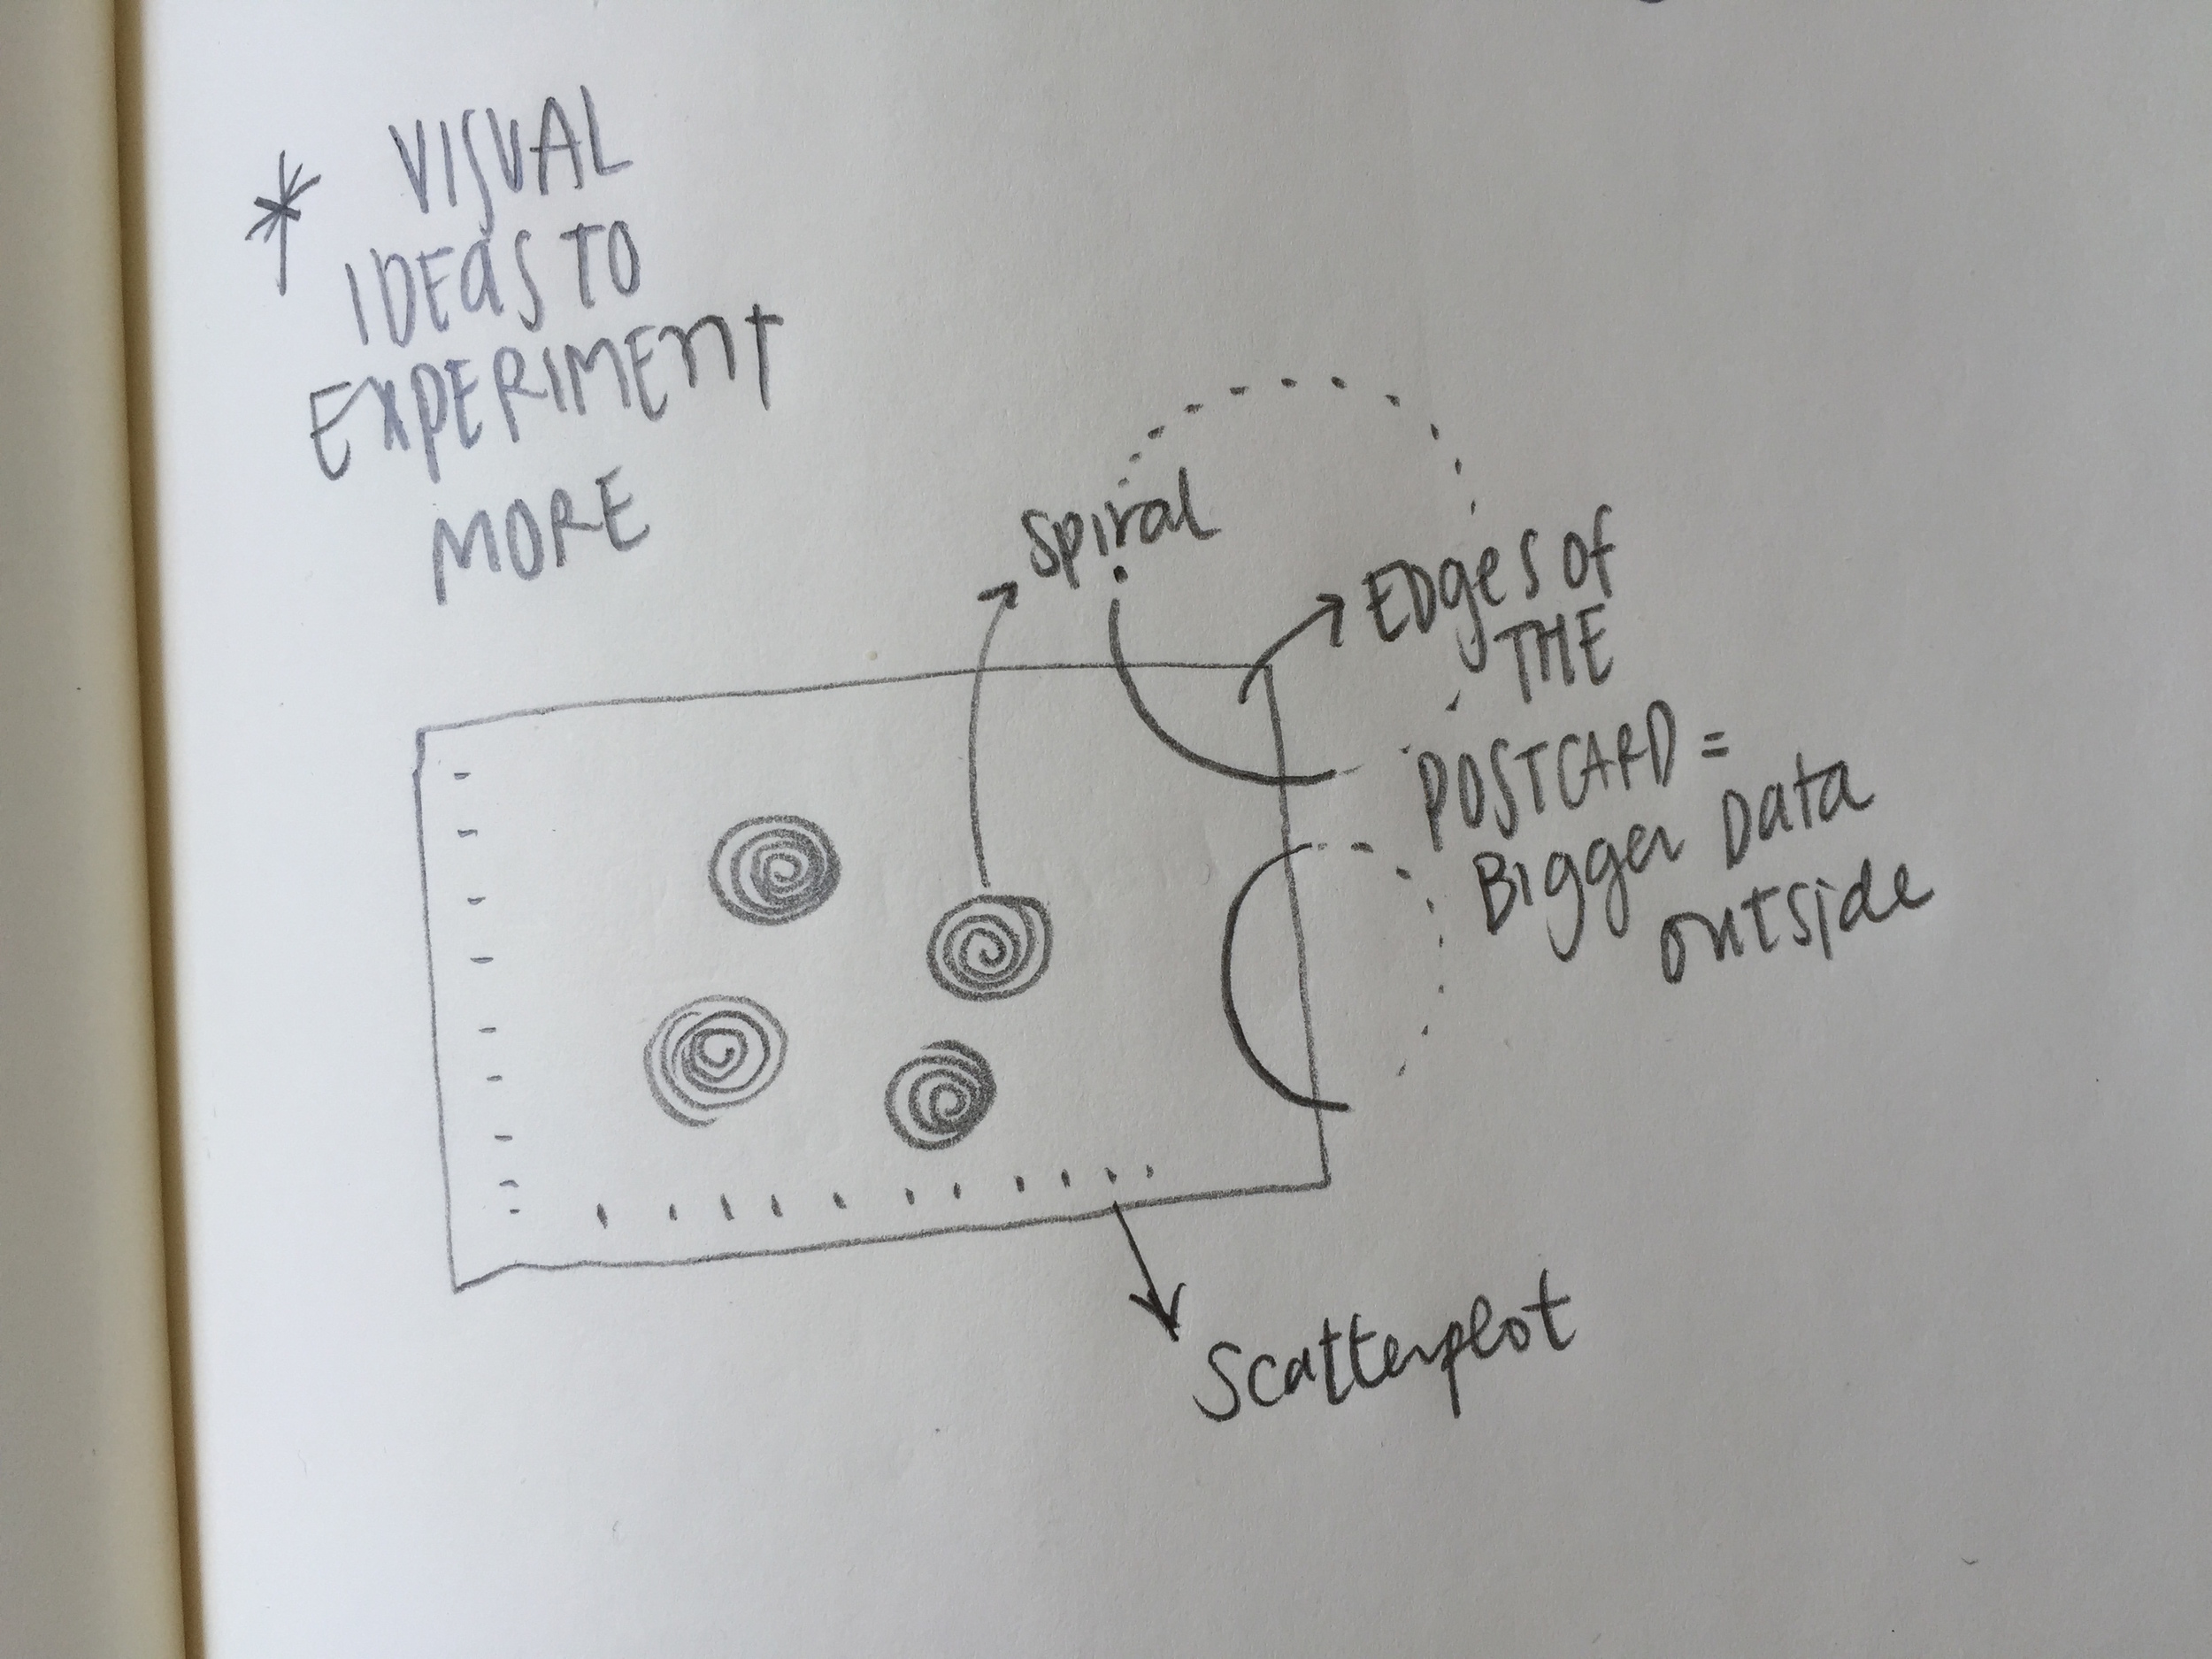 * VISUAL
IDEaS TO
EXPERIMEnt
MORE
Spiral
EDges of
THE
POSTCARD =
Bigger Data
outside
Scatterplot